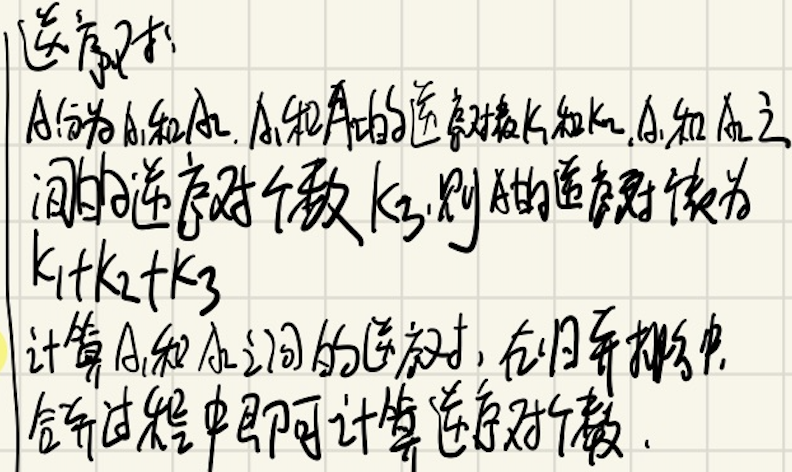 逆序对:
A分为A1和A2. A1和A2的逆序对数K1和K2, A1和A2之
间的逆序对个数K3, 则A的逆序对个数为
K1+K2+K3
计算A1和A2之间的逆序对, 在归并排序中,
合并过程中即可计算逆序对个数.